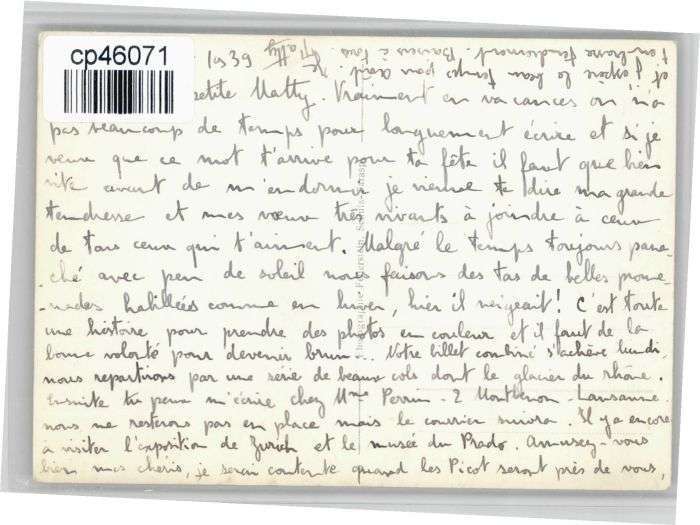 cp46071
1939
petite Matty. Vraiment en vacances on n'a
pas beaucoup de temps pour longuement écrire et si je
veux que ce mot t'arrive pour ta fête il faut que bien
vite avant de m'endormir je vienne te dire ma grande
tendresse et mes vœux très vivants à joindre à ceux
de tous ceux qui t'aiment. Malgré le temps toujours pana-
-ché avec peu de soleil nous faisons des tas de belles prome-
-nades habillées comme en hiver, hier il neigeait! C'est toute
une histoire pour prendre des photos en couleur et il faut de la
bonne volonté pour devenir brun... Notre billet combiné s'achève lundi,
nous repartirons par une série de beaux cols dont le glacier du rhône.
Ensuite tu peux m'écrire chez Mme Perrin - 2 Montbenon - Lausanne.
nous ne resterons pas en place mais le courrier suivra. Il y a encore
à visiter l'exposition de Zurich et le musée du Prado. Amusez-vous
bien mes chéris, je serai contente quand les Picot seront près de vous,
et j'espère le beau temps pour août. Je
t'embrasse tendrement. Baisers à tous.
Matty